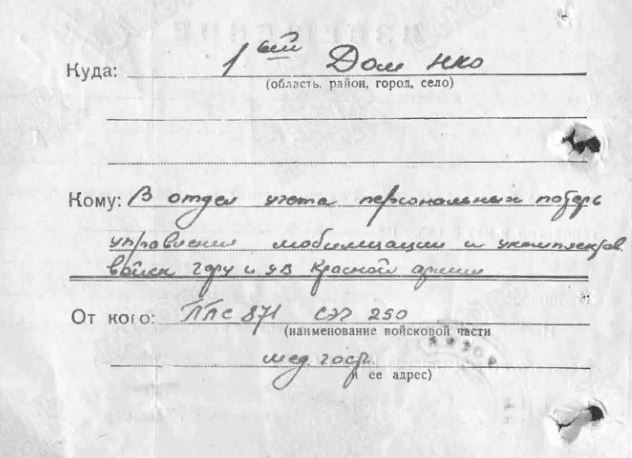 Куда: 1ый Дом нко
(область, район, город, село)
Кому: В отдел учета персональных потерь
управления мобилизации и укомплектов.
войск гфу и ув Красной армии
От кого: ППС 871 СЭГ 250
(наименование войсковой части
мед. госп.
и ее адрес)